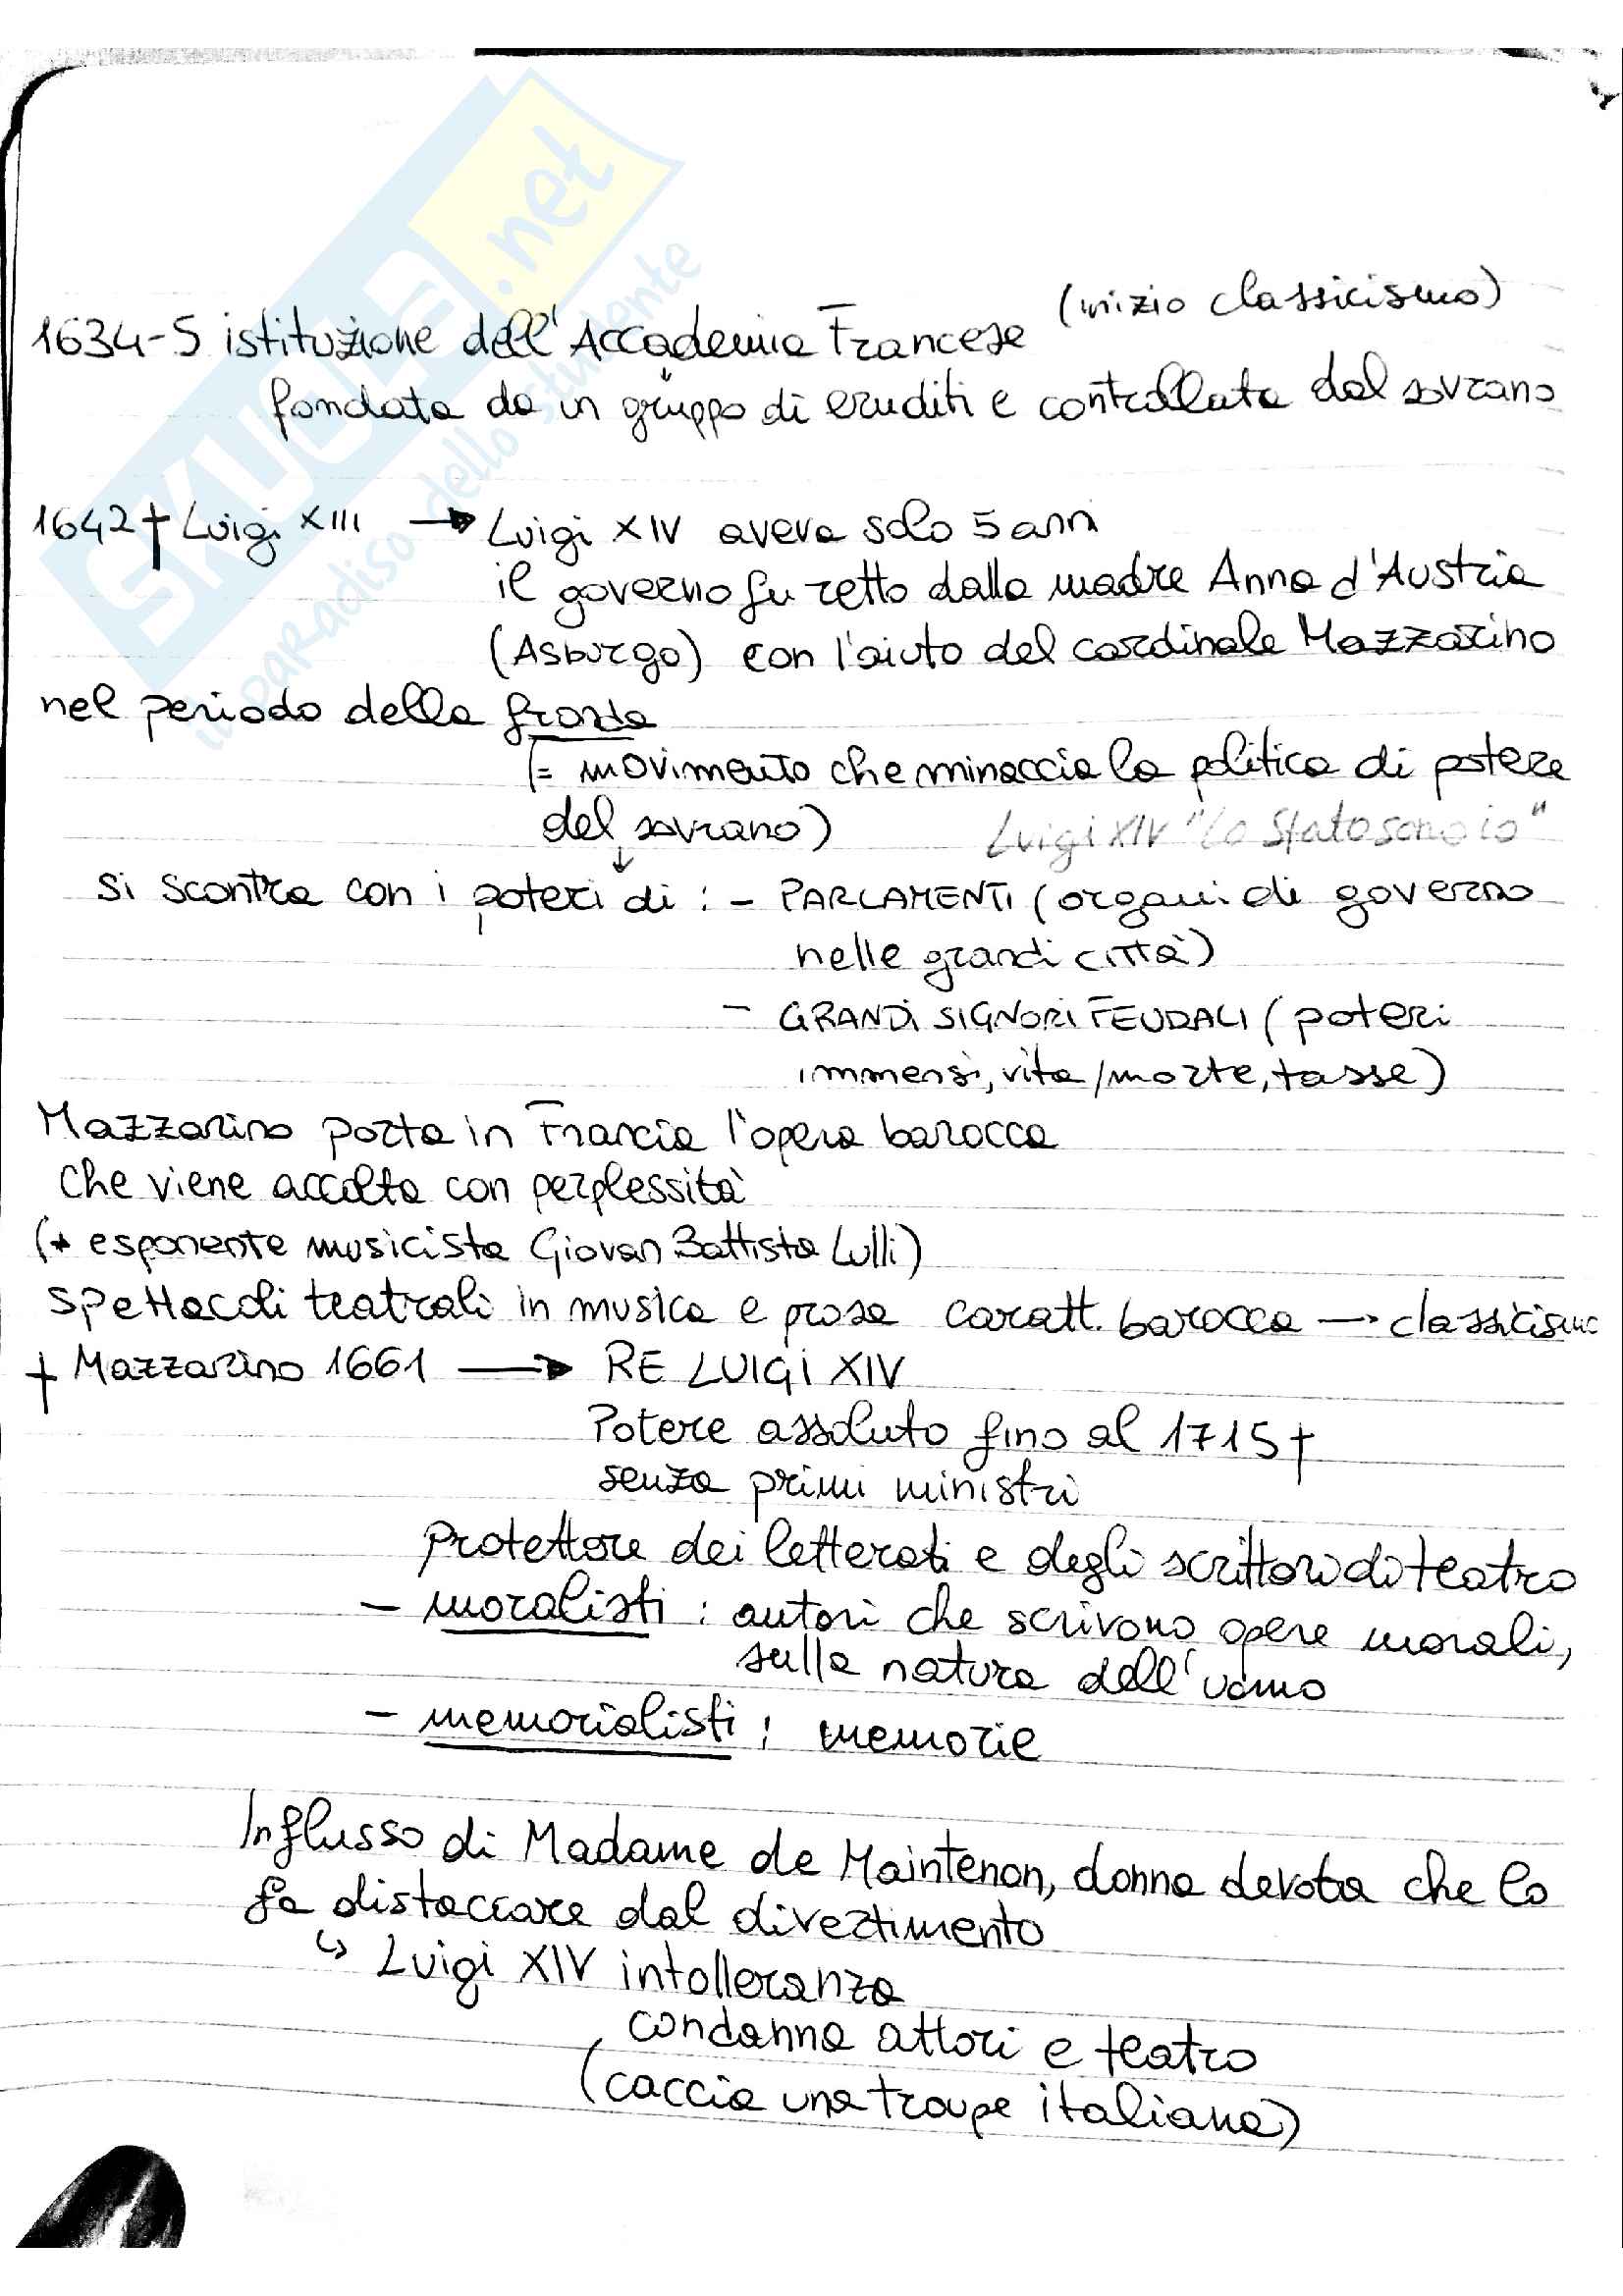 SKUOLA.net
il paradiso dello studente
(inizio classicismo)
1634-5 istituzione dell'Accademia Francese
fondata da un gruppo di eruditi e controllata dal sovrano
1642 † Luigi XIII → Luigi XIV aveva solo 5 anni
il governo fu retto dalla madre Anna d'Austria
(Asburgo) con l'aiuto del cardinale Mazzarino
nel periodo della fronda
(= movimento che minaccia la politica di potere
del sovrano) Luigi XIV "Lo Stato sono io"
si scontra con i poteri di : - PARLAMENTI (organi di governo
nelle grandi città)
- GRANDI SIGNORI FEUDALI (poteri
immensi, vita/morte, tasse)
Mazzarino porta in Francia l'opera barocca
che viene accolta con perplessità
(+ esponente musicista Giovan Battista Lulli)
Spettacoli teatrali in musica e prosa caratt. barocca → classicismo
† Mazzarino 1661 → RE LUIGI XIV
Potere assoluto fino al 1715 †
senza primi ministri
Protettore dei letterati e degli scrittori di teatro
- moralisti : autori che scrivono opere morali,
sulla natura dell'uomo
- memorialisti : memorie
Influsso di Madame de Maintenon, donna devota che lo
fa distaccare dal divertimento
↳ Luigi XIV intolleranza
condanna attori e teatro
(caccia una troupe italiana)